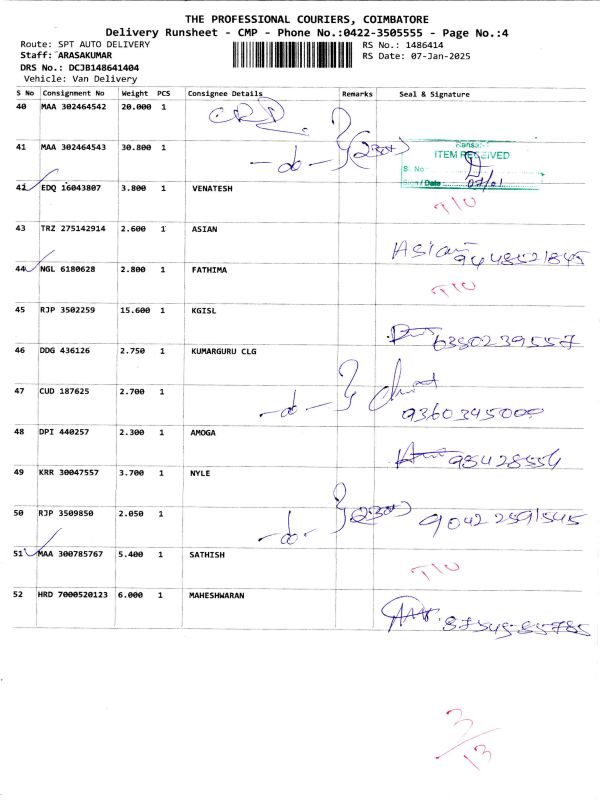 THE PROFESSIONAL COURIERS, COIMBATORE
Delivery Runsheet - CMP - Phone No.:0422-3505555 - Page No.:4
Route: SPT AUTO DELIVERY RS No.: 1486414
Staff: ARASAKUMAR RS Date: 07-Jan-2025
DRS No.: DCJB148641404
Vehicle: Van Delivery
S No Consignment No Weight PCS Consignee Details Remarks Seal & Signature
40 MAA 302464542 20.000 1
41 MAA 302464543 30.800 1 -do-
ITEM RECEIVED
S. No
Sign / Date 07/01
42 EDQ 16043807 3.800 1 VENATESH
43 TRZ 275142914 2.600 1 ASIAN Asian
44 NGL 6180628 2.800 1 FATHIMA
45 RJP 3502259 15.600 1 KGISL 6380239557
46 DDG 436126 2.750 1 KUMARGURU CLG
47 CUD 187625 2.700 1 -do- 9360345000
48 DPI 440257 2.300 1 AMOGA
49 KRR 30047557 3.700 1 NYLE
50 RJP 3509850 2.050 1 -do- 90422591545
51 MAA 300785767 5.400 1 SATHISH
52 HRD 7000520123 6.000 1 MAHESHWARAN 87545-85785
3/13